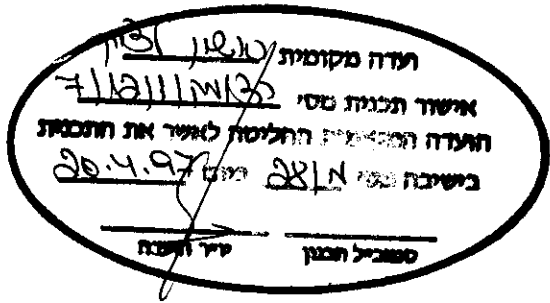 ועדה מקומית ראשון לציון
אישור תכנית מס׳
הועדה המקומית החליטה לאשר את התכנית
בישיבה מס׳ 28/א ביום 20.4.97
סמנכ״ל תכנון יו״ר הועדה